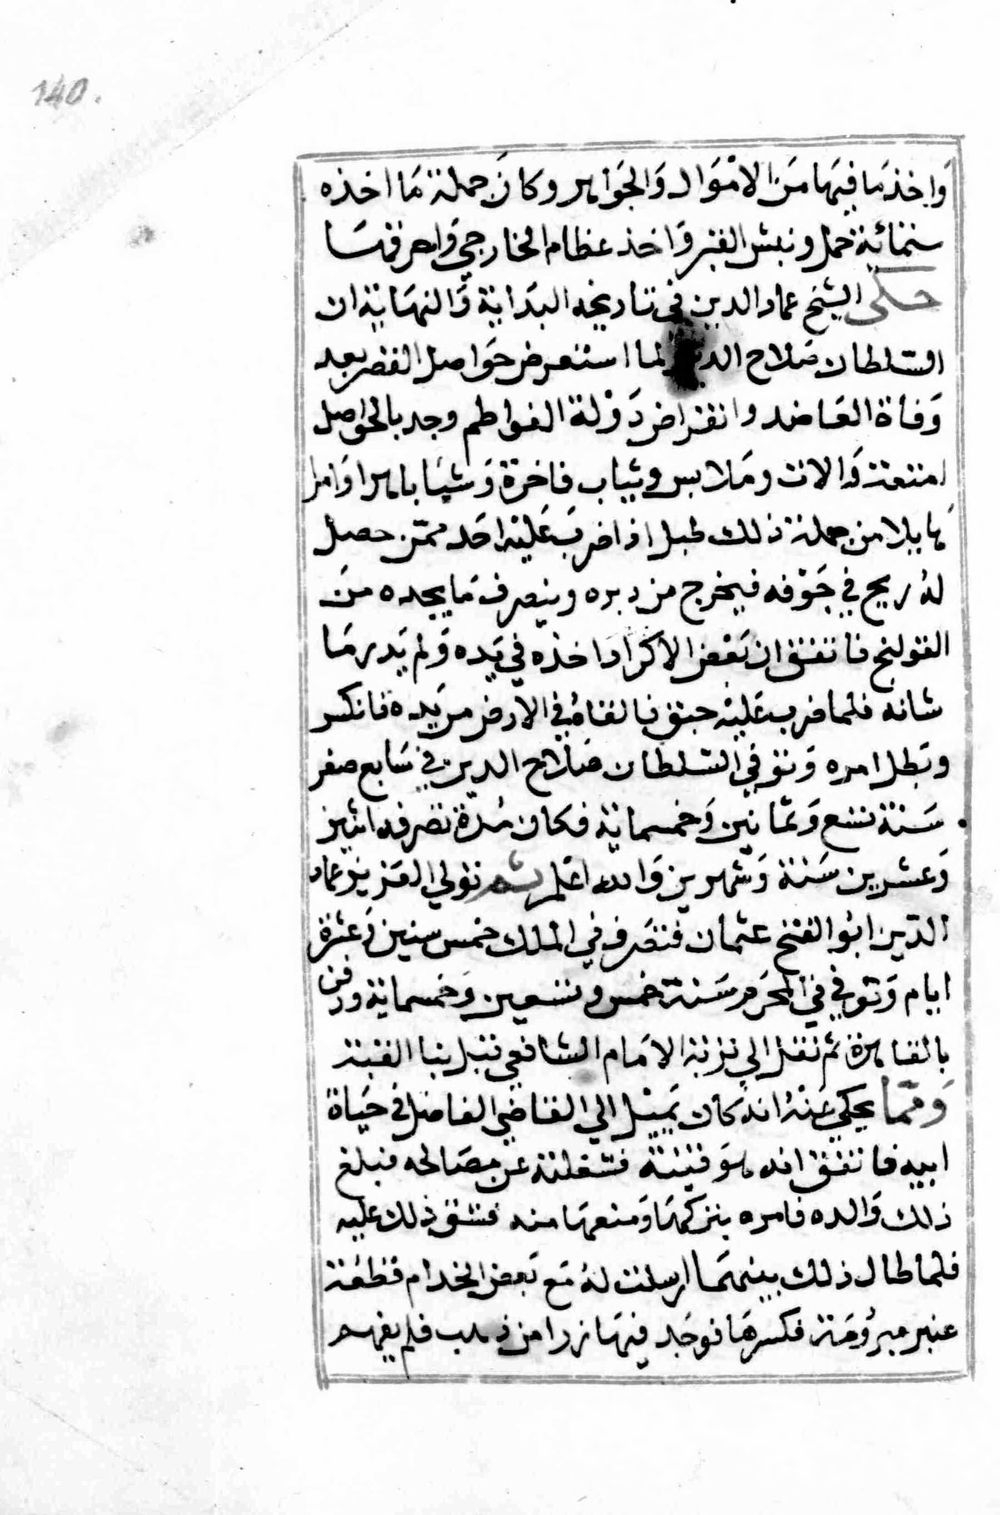 140.
وَاخذ مَا فيهَا منَ الامْوَال وَالجَواهر وكانَ جملة مَا اخذه
ستمائة حمل ونبش القبر وَاخذ عظام الخارجي وَاحرقهَا
حكى الشيخ عماد الدين في تاريخه البدَاية وَالنهَاية ان
السّلطان صَلاح الدين لما استعرض حَواصل القصر بعد
وَفاة العَاضد وانقراض دَوْلة الفواطم وجد بالحواصل
امتعة وَالات ومَلابس وثياب فاخرة وَشيَا باهرا وَامرا
هَايلا من جملة ذلك طبل اذا ضربَ عَليْه احَد ممّن حصل
لهُ ريح في جَوْفه فيخرج من دبره وينصرف مَا يجده منَ
القولنج فاتفق ان بَعْض الاكرَاد اخذه في يَده وَلم يَدر مَا
شانه فلما ضرب عَليْه حبق فالقاهُ في الارض من يَده فانكسر
وبَطل امره وَتوفي السّلطان صَلاح الدين في سَابع صفر
سَنة تسع وَثمانين وَخمسماية فكان مُدة تصرفه اثنين
وَعشرين سَنة وَشهرين وَالله اعْلم ثم تولي العَزيز عماد
الدّين ابُو الفتح عثمان فتصَرف في الملك خمس سنين وَعشرة
ايام وَتوفي في المحَرم سَنة خمس وتسعين وَخمسماية ودفن
بالقاهرة ثم نقل الي تربة الامَام الشافعي قبل بنا القبة
وَممّا يحكي عَنْهُ انه كان يَميْل الي القاضي الفاضل في حَيَاة
ابيه فاتفق انه هوَ قيْنة فشغلتة عن مصَالحه فبلغ
ذلك وَالده فامره بتركهَا وَمنعهَا منه فشق ذلك عليه
فلما طال ذلك بينهمَا ارسلت لهُ مَع بَعض الخدام قطعَة
عنبر مبرُومَة فكسرهَا فوجَد فيهَا زرا من ذهب فلم يفهم